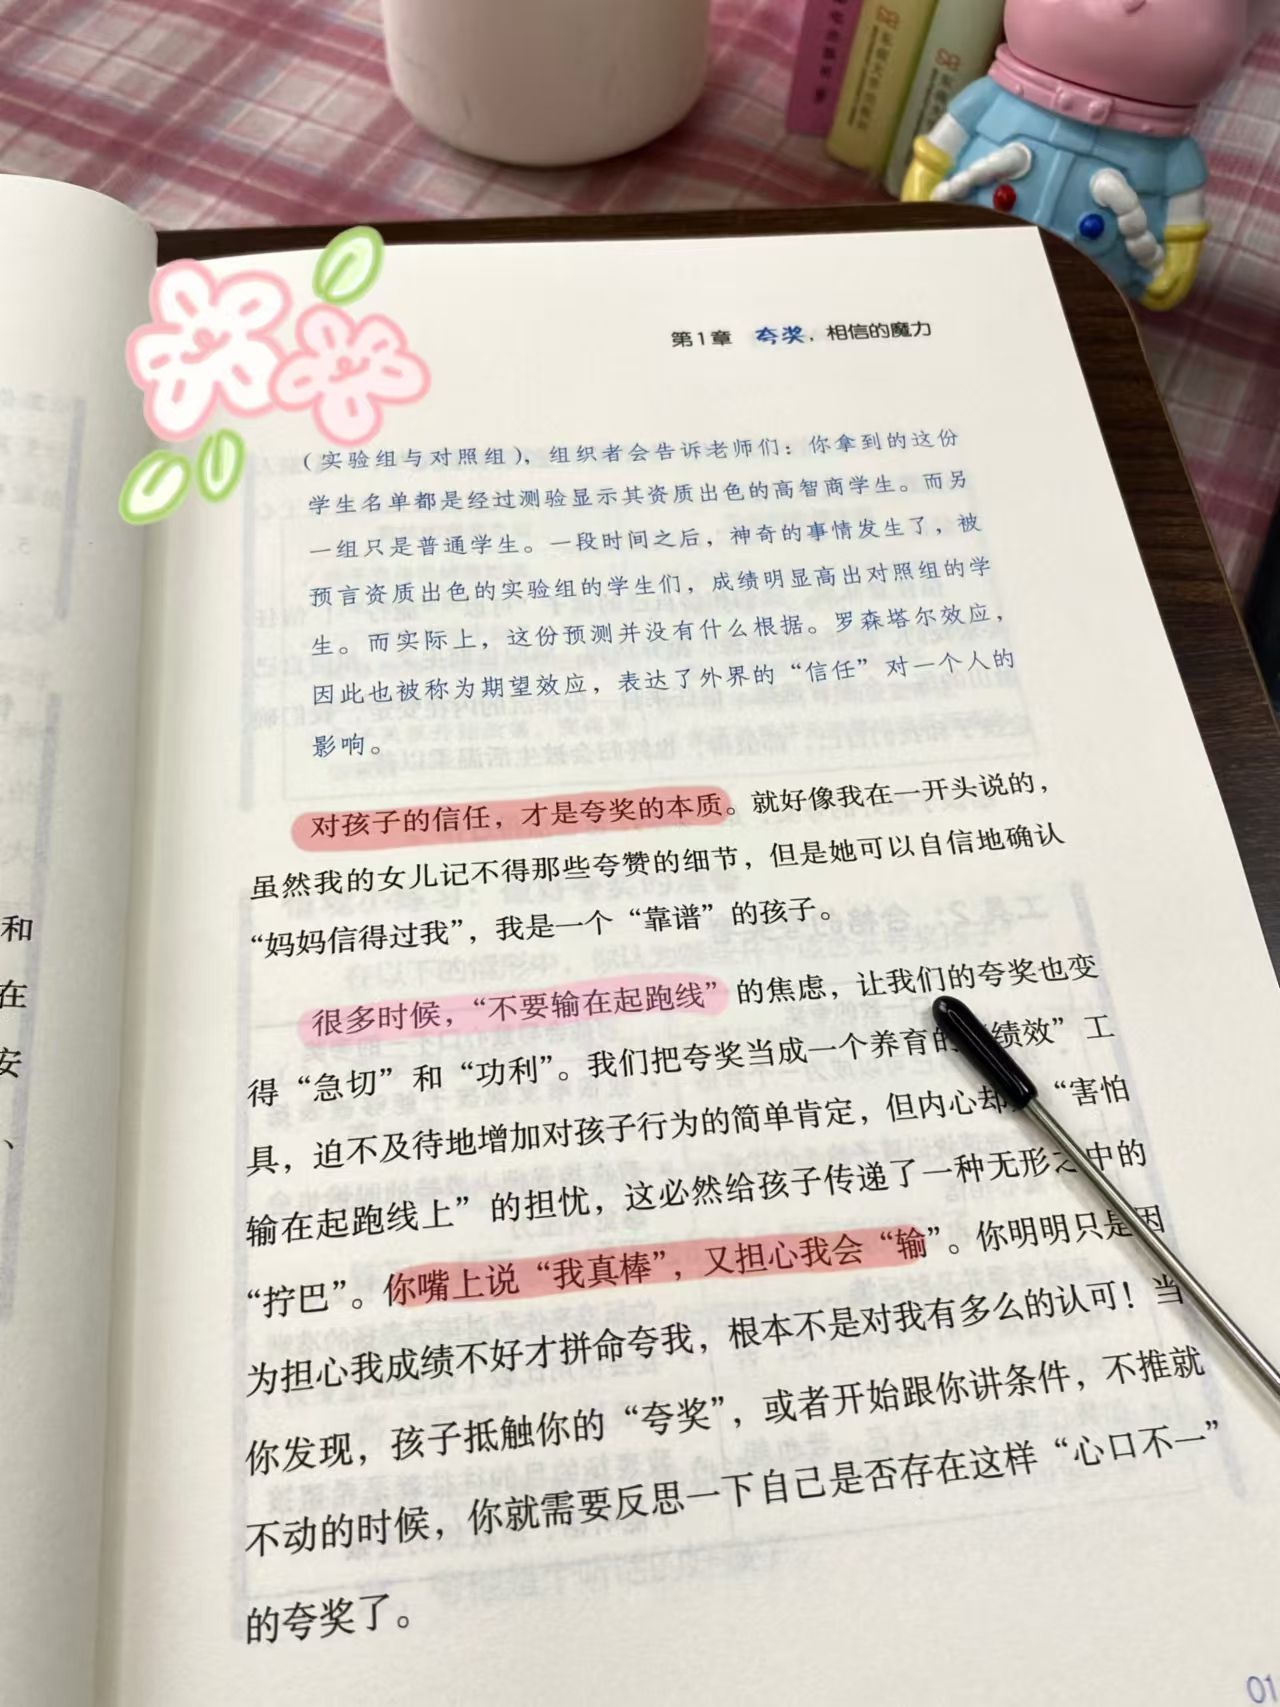 第1章 夸奖，相信的魔力
（实验组与对照组），组织者会告诉老师们：你拿到的这份
学生名单都是经过测验显示其资质出色的高智商学生。而另
一组只是普通学生。一段时间之后，神奇的事情发生了，被
预言资质出色的实验组的学生们，成绩明显高出对照组的学
生。而实际上，这份预测并没有什么根据。罗森塔尔效应，
因此也被称为期望效应，表达了外界的“信任”对一个人的
影响。
对孩子的信任，才是夸奖的本质。就好像我在一开头说的，
虽然我的女儿记不得那些夸赞的细节，但是她可以自信地确认
“妈妈信得过我”，我是一个“靠谱”的孩子。
很多时候，“不要输在起跑线”的焦虑，让我们的夸奖也变
得“急切”和“功利”。我们把夸奖当成一个养育的“绩效”工
具，迫不及待地增加对孩子行为的简单肯定，但内心却“害怕
输在起跑线上”的担忧，这必然给孩子传递了一种无形之中的
“拧巴”。你嘴上说“我真棒”，又担心我会“输”。你明明只是因
为担心我成绩不好才拼命夸我，根本不是对我有多么的认可！当
你发现，孩子抵触你的“夸奖”，或者开始跟你讲条件，不推就
不动的时候，你就需要反思一下自己是否存在这样“心口不一”
的夸奖了。
01
和
在
安
、